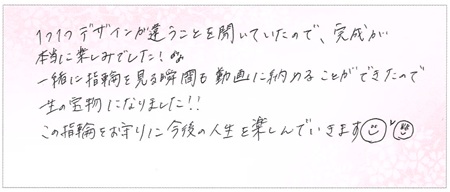 1つ1つデザインが違うことを聞いていたので、完成が
本当に楽しみでした!
一緒に指輪を見る瞬間も動画に納めることができたので
一生の宝物になりました!!
この指輪をお守りに今後の人生を楽しんでいきます